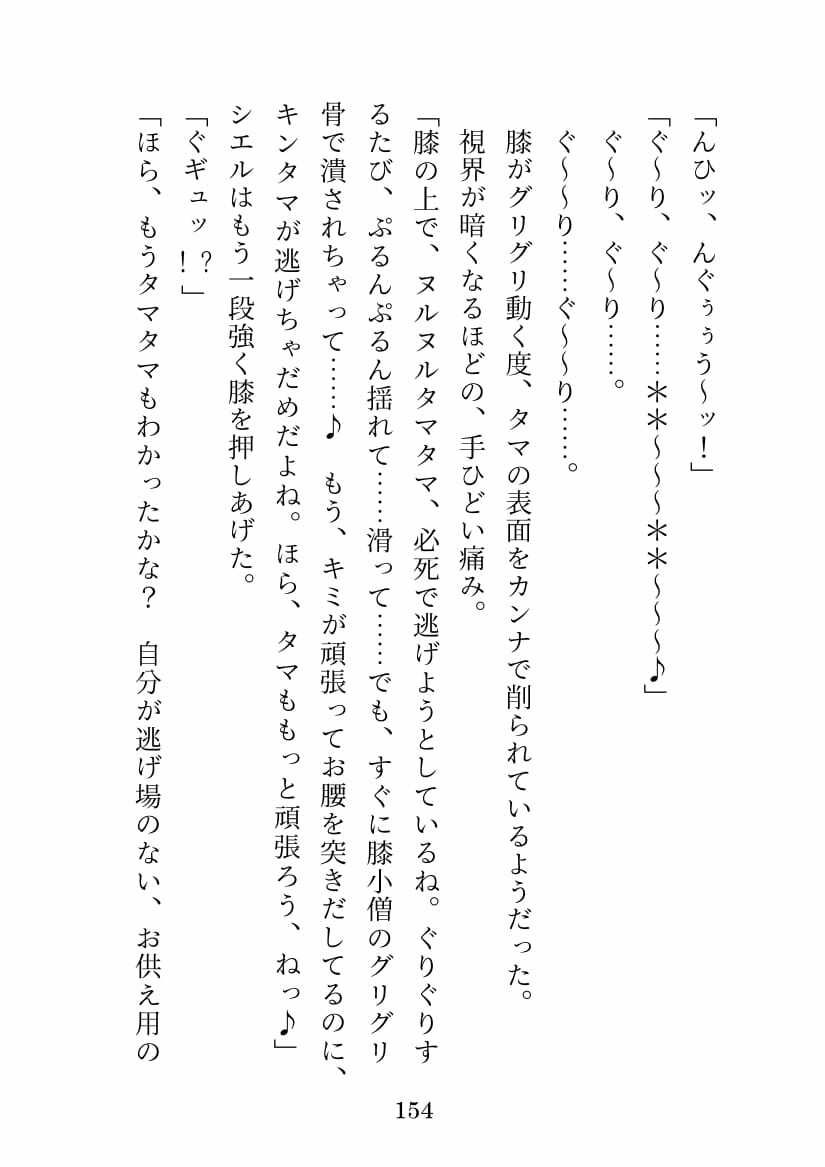 「んひッ、んぐぅぅう～ッ！」
「ぐ～り、ぐ～り……＊＊～～～＊＊～～～♪」
ぐ～り、ぐ～り……。
ぐ～～り……ぐ～～り……。
膝がグリグリ動く度、タマの表面をカンナで削られているようだった。
視界が暗くなるほどの、手ひどい痛み。
「膝の上で、ヌルヌルタマタマ、必死で逃げようとしているね。ぐりぐりす
るたび、ぷるんぷるん揺れて……滑って……でも、すぐに膝小僧のグリグリ
骨で潰されちゃって……♪　もう、キミが頑張ってお腰を突きだしてるのに、
キンタマが逃げちゃだめだよね。ほら、タマももっと頑張ろう、ねっ♪」
シエルはもう一段強く膝を押しあげた。
「ぐギュッ！？」
「ほら、もうタマタマもわかったかな？　自分が逃げ場のない、お供え用の
154